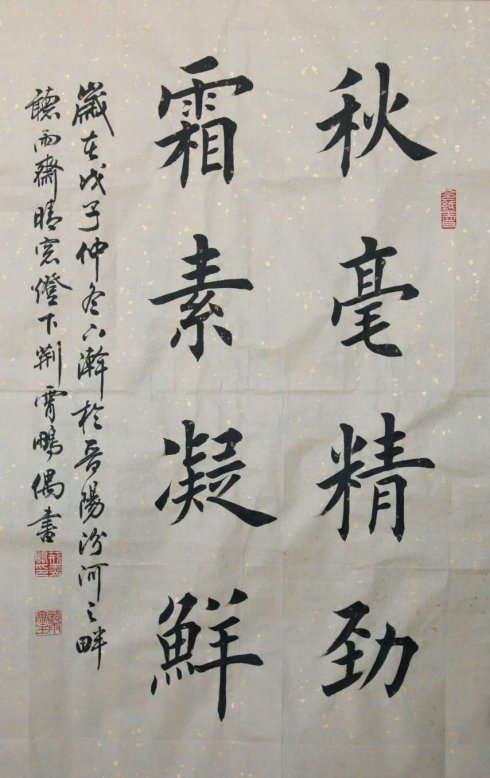 秋毫精勁
霜素凝鮮
歲在戊子仲冬下澣於晉陽汾河之畔
聽雨齋晴窓燈下荆霄鵬偶書